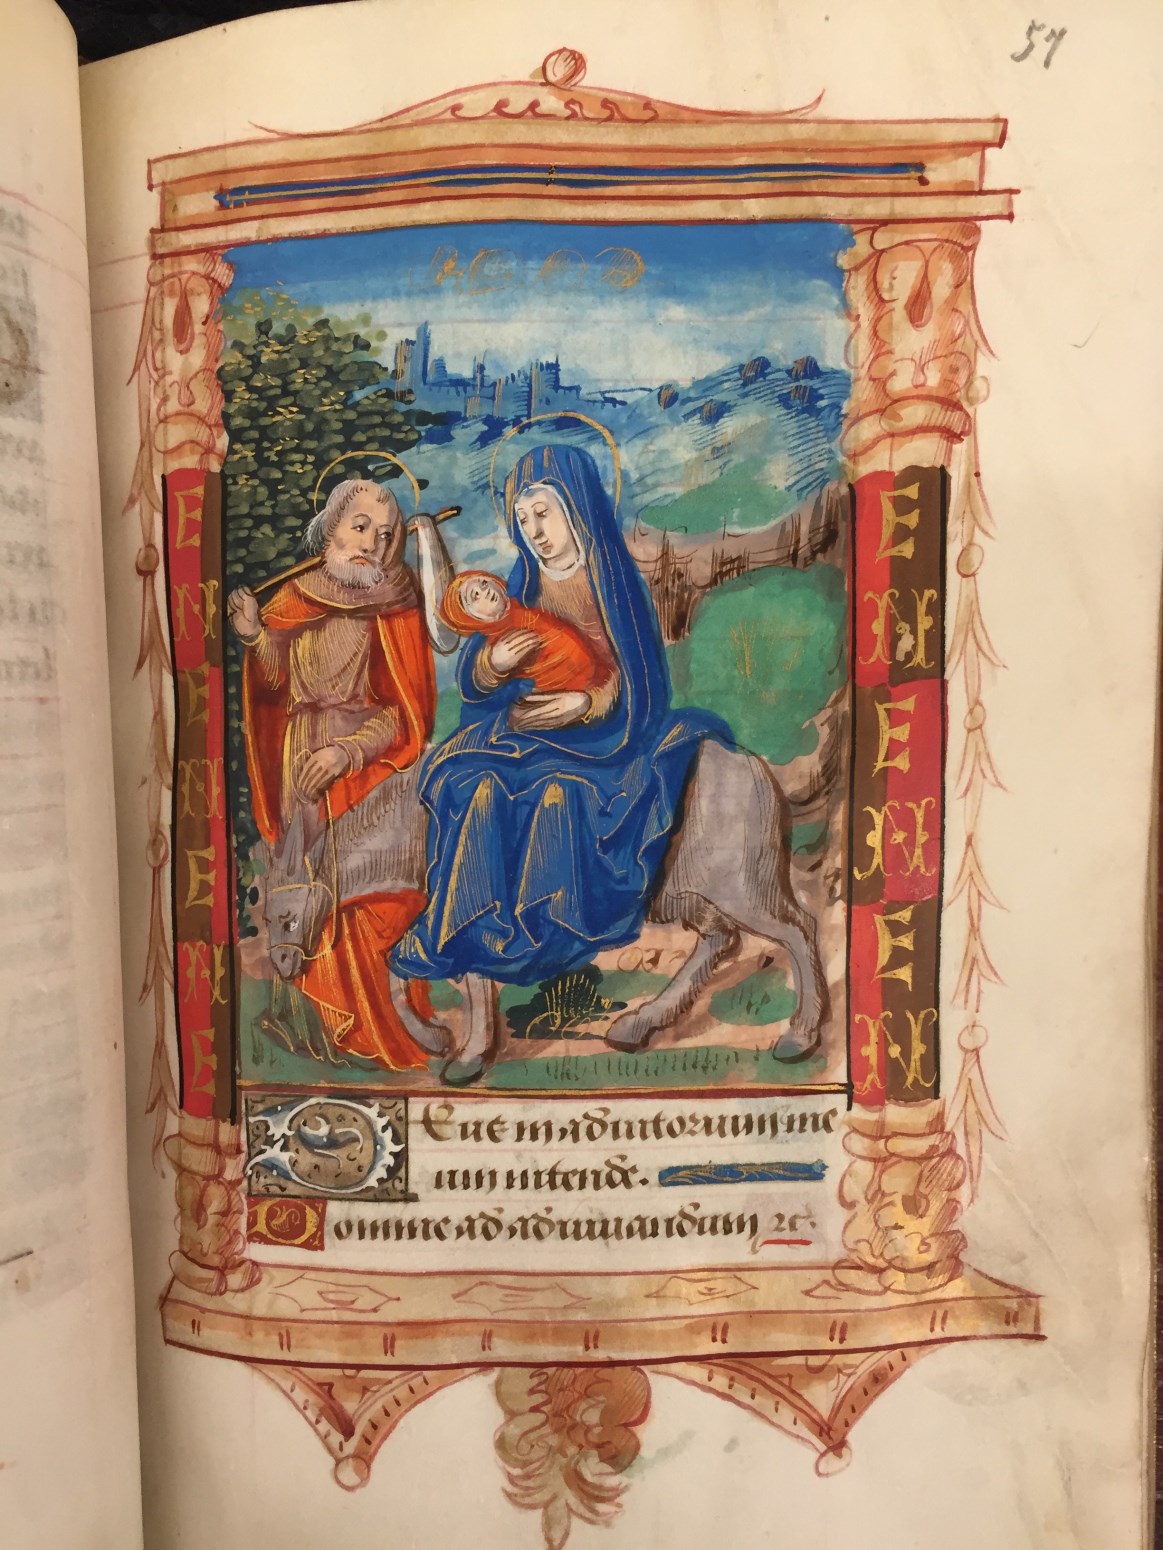 57
E
N
E
N
E
N
E
E
N
E
N
E
N
Deus in adiutorium me
um intende.
Domine ad adiuuandum ⁊c.